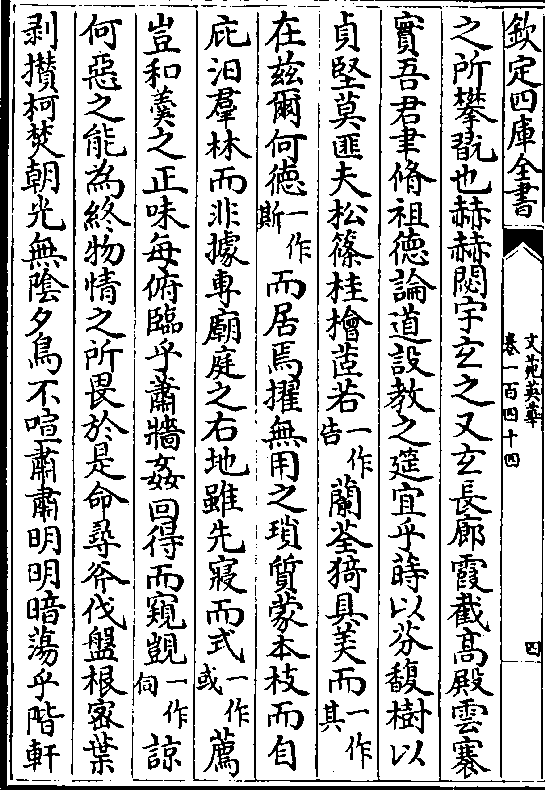 欽定四庫全書
文苑英華
卷一百四十四
四
之所攀翫也赫赫閟宇玄之又玄長廊霞截高殿雲褰
實吾君聿脩祖德論道設教之筵宜乎蒔以芬馥樹以
貞堅莫匪夫松篠桂檜茝若一作告蘭荃猗具美而一作其
在茲爾何德一作斯而居焉擢無用之瑣質蒙本枝而自
庇汨羣林而非據專廟庭之右地雖先寢而式一作或薦
豈和羹之正味每俯臨乎蕭牆姦回得而窺覬一作伺諒
何惡之能為終物情之所畏於是命尋斧伐盤根密葉
剥攅柯焚朝光無陰夕鳥不喧肅肅明明暗蕩乎階軒